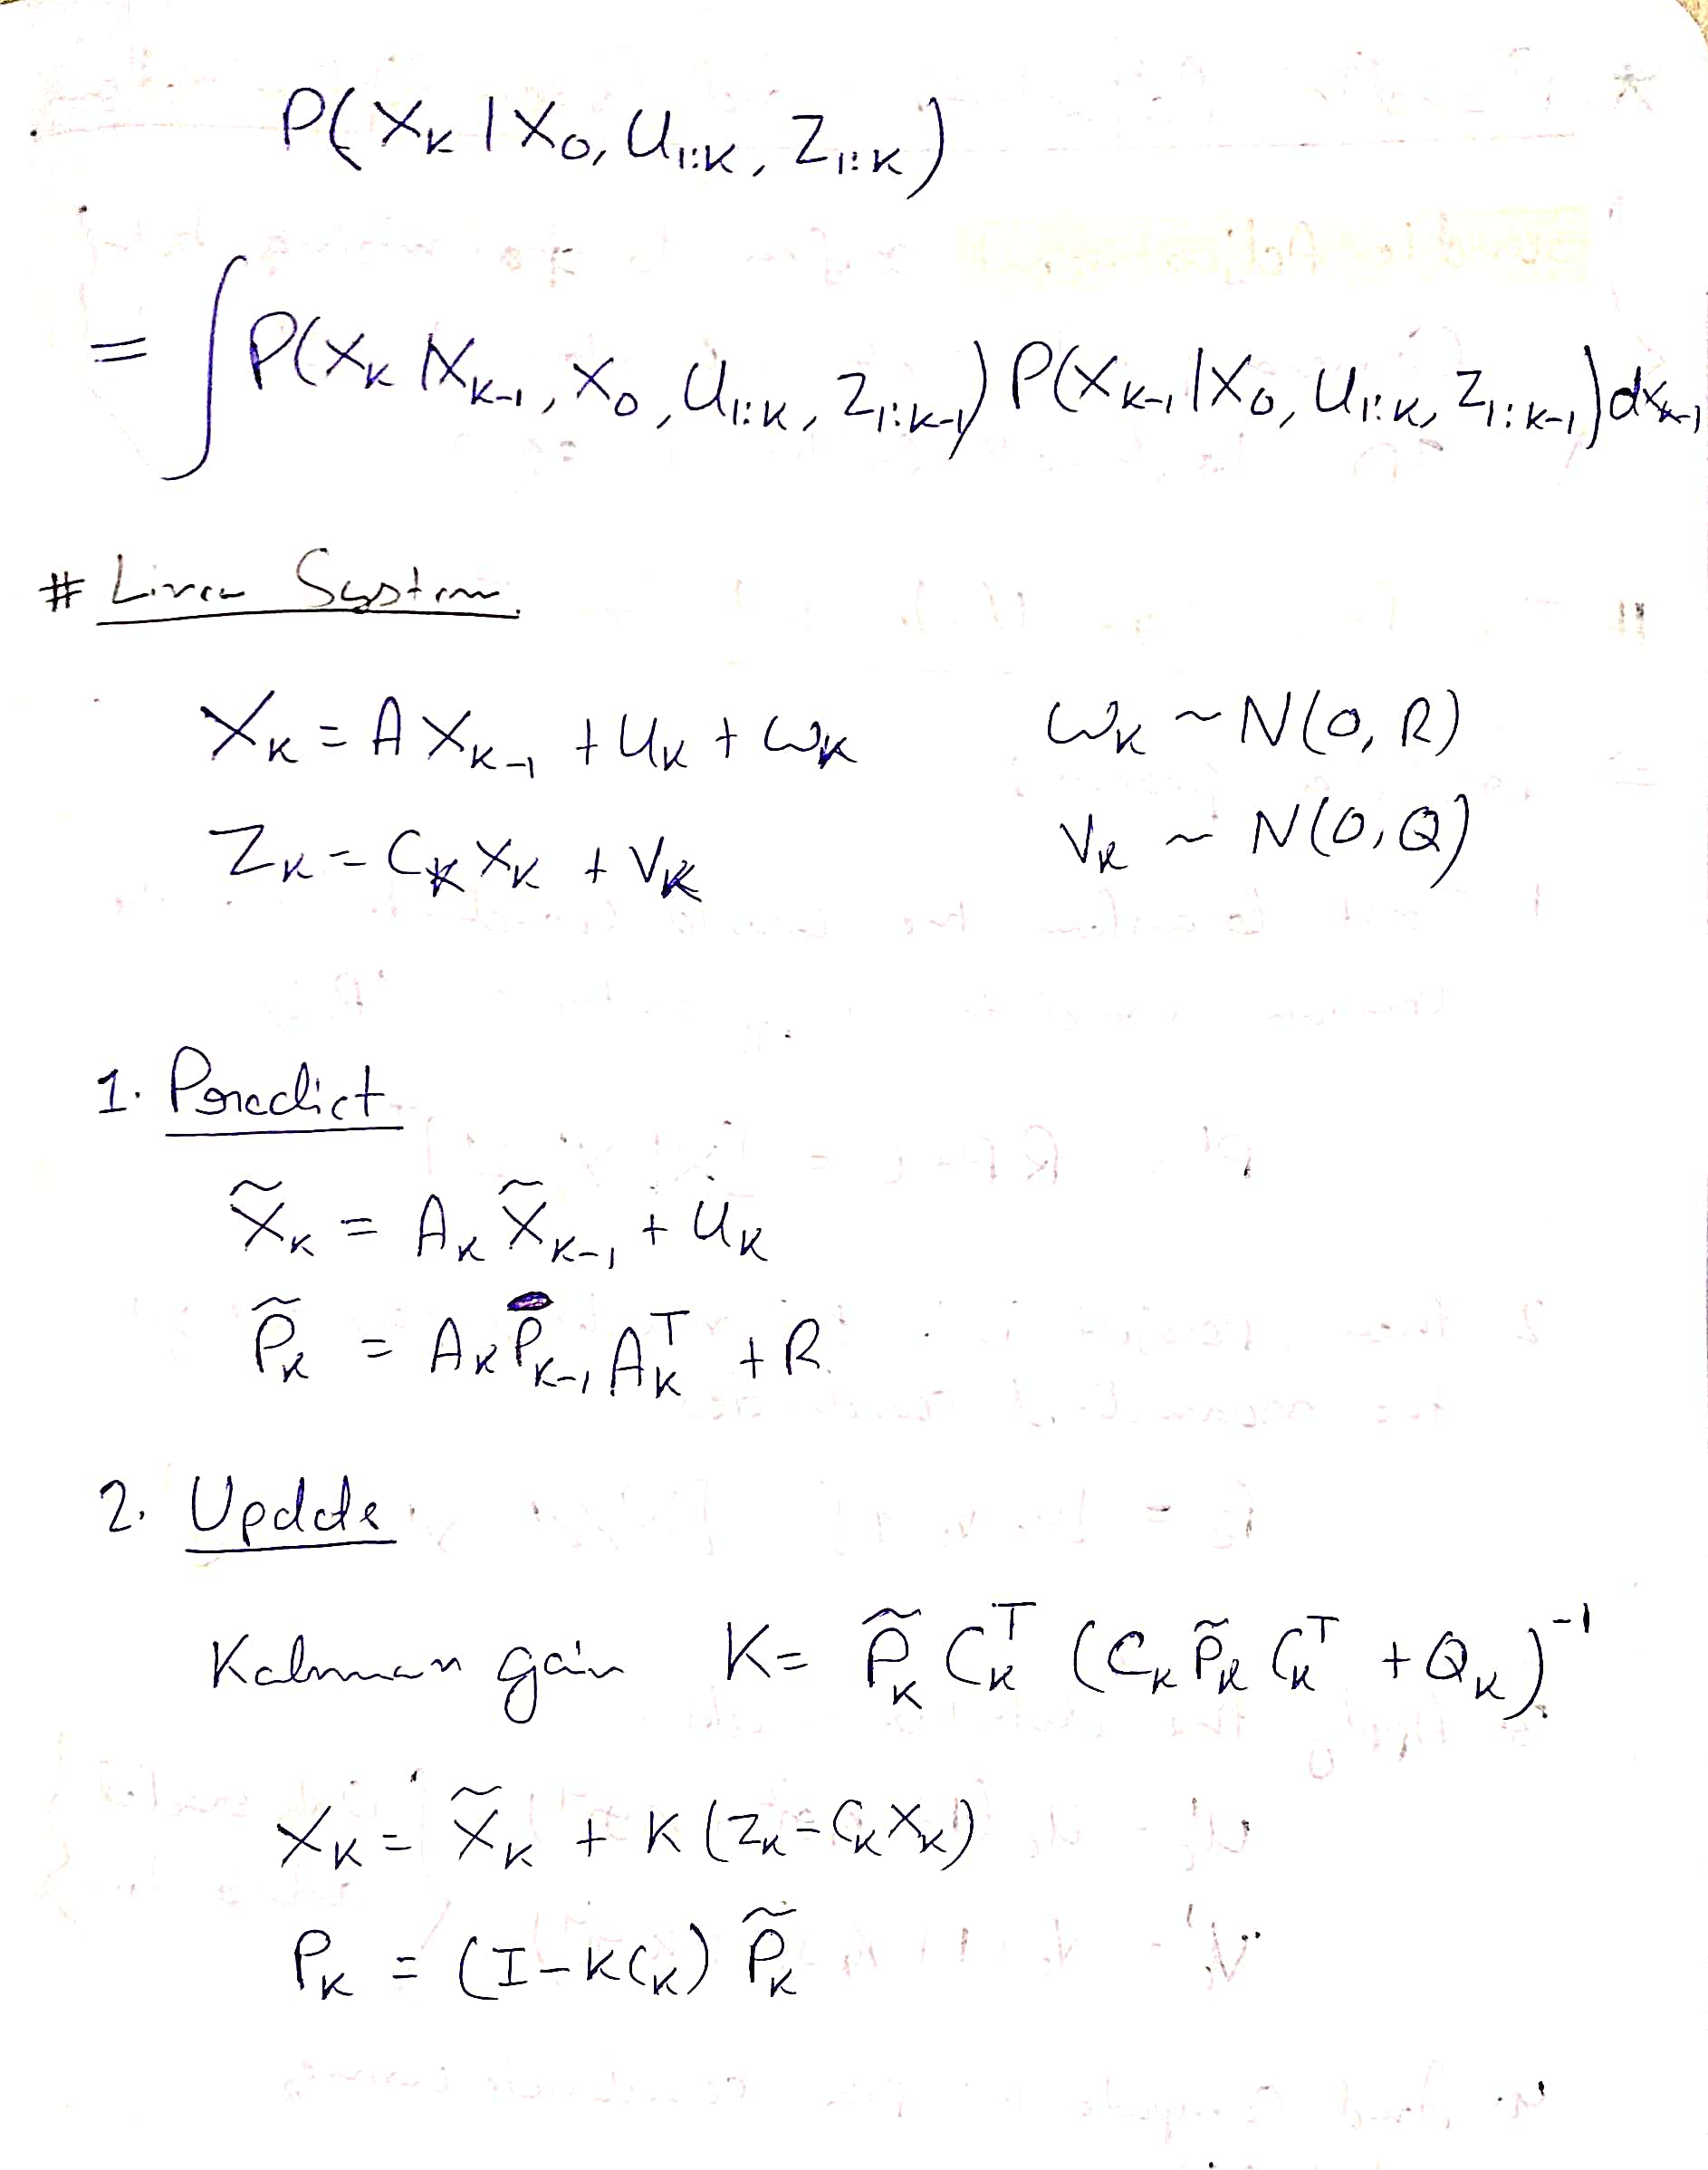 P(X_K | X_0, U_{1:K}, Z_{1:K})
= ∫ P(X_K | X_{K-1}, X_0, U_{1:K}, Z_{1:K-1}) P(X_{K-1} | X_0, U_{1:K}, Z_{1:K-1}) dx_{K-1}
# Linear System.
X_K = A X_{K-1} + U_K + ω_K    ω_K ~ N(0, R)
Z_K = C_K X_K + V_K    V_K ~ N(0, Q)
1. Predict
X̃_K = A_K X̃_{K-1} + U_K
P̃_K = A_K P_{K-1} A_K^T + R
2. Update
Kalman gain K = P̃_K C_K^T (C_K P̃_K C_K^T + Q_K)^{-1}
X_K = X̃_K + K (Z_K - C_K X_K)
P_K = (I - K C_K) P̃_K